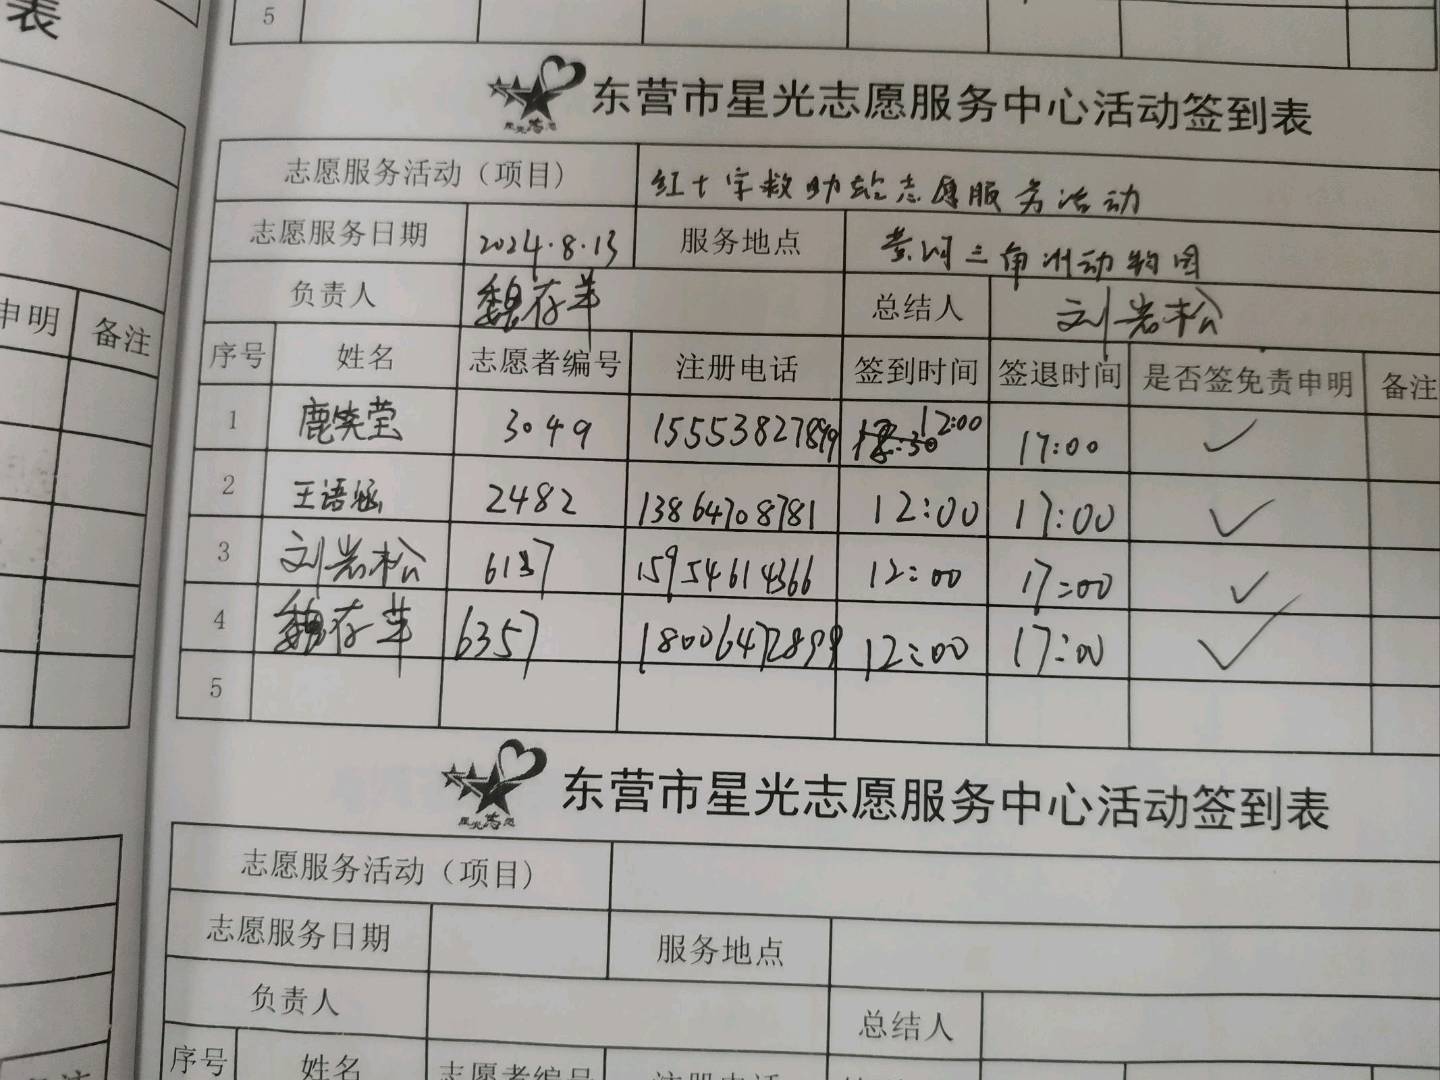 表
5
东营市星光志愿服务中心活动签到表
星光志愿
志愿服务活动（项目） 红十字救助站志愿服务活动
志愿服务日期 2024.8.13 服务地点 黄河三角洲动物园
负责人 魏存苹 总结人 刘岩松
申明 备注
序号 姓名 志愿者编号 注册电话 签到时间 签退时间 是否签免责申明 备注
1 鹿笑莹 3049 15553827899 12:00 17:00 ✓
2 王语涵 2482 13864708781 12:00 17:00 ✓
3 刘岩松 6137 15954614366 12:00 17:00 ✓
4 魏存苹 6357 18006472899 12:00 17:00 ✓
5
东营市星光志愿服务中心活动签到表
星光志愿
志愿服务活动（项目）
志愿服务日期 服务地点
负责人 总结人
序号 姓名 志愿者编号 注册电话